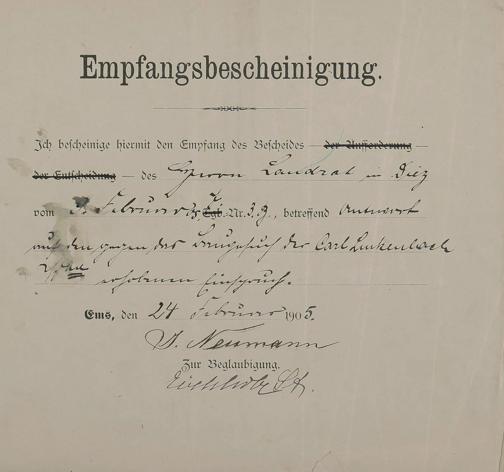 Empfangsbescheinigung.
Ich bescheinige hiermit den Empfang des Bescheides – der Aufforderung –
der Entscheidung – des Herrn Landrat in Diez
vom Februar Tgb.-Nr. J. 9., betreffend Antwort
auf den gegen das Baugesuch des Carl Linkenbach
erhobenen Einspruch.
Ems, den 24 Februar 1905.
J. Neumann
Zur Beglaubigung.